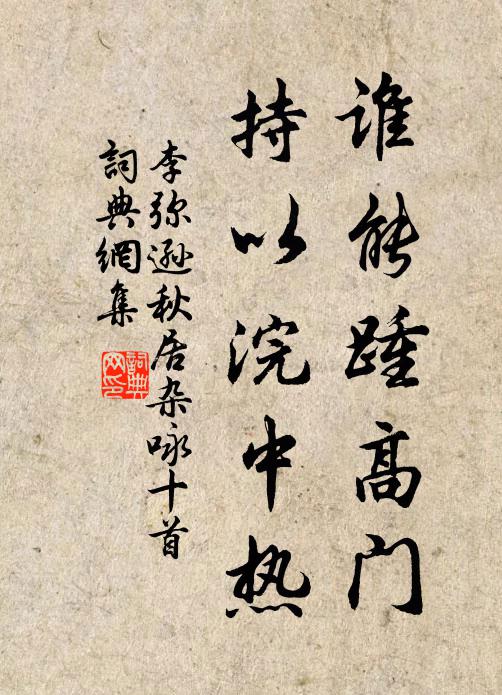 谁能踵高门
持以浣中热
李弥逊秋居杂咏十首
詞典網集
詞典網印